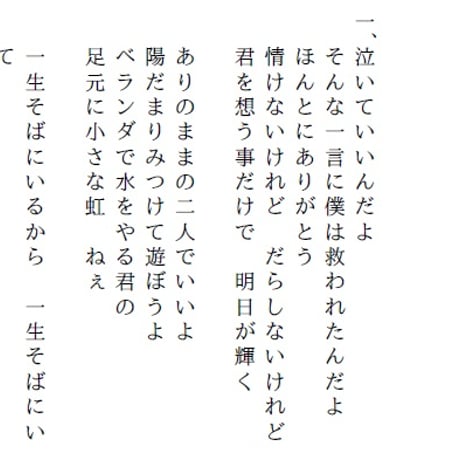 一、泣いていいんだよ
そんな一言に僕は救われたんだよ
ほんとにありがとう
情けないけれど　だらしないけれど
君を想う事だけで　明日が輝く
ありのままの二人でいいよ
陽だまりみつけて遊ぼうよ
ベランダで水をやる君の
足元に小さな虹　ねぇ
一生そばにいるから　一生そばにい
て